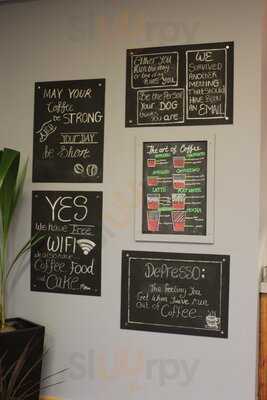 MAY YOUR
Coffee
be STRONG
& YOUR DAY
be Short
Either You
Run the day
or the day
Runs YOU
WE
SURVIVED
ANOTHER
MEETING
THAT SHOULD
HAVE BEEN
AN EMAIL
Be the Person
YOUR DOG
thinks YOU are
The art of Coffee
LATTE
FLAT WHITE
MOCHA
YES
We have Free
WIFI
we also have
Coffee Food
and Cake
DePRESSO:
The Feeling You
Get When You've run
OUT of Coffee
sluurpy
sluurpy